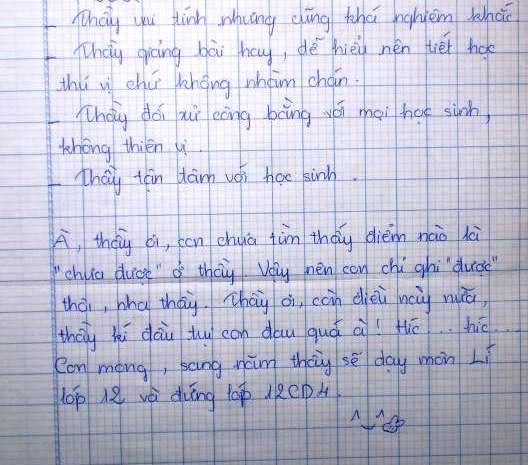 - Thầy vui tính nhưng cũng khá nghiêm khắc
- Thầy giảng bài hay, dễ hiểu nên tiết học
thú vị chứ không nhàm chán.
- Thầy đối xử công bằng với mọi học sinh,
không thiên vị.
- Thầy tận tâm với học sinh.
À, thầy ơi, con chưa tìm thấy điểm nào là
"chưa được" ở thầy. Vậy nên con chỉ ghi "được"
thôi, nha thầy. Thầy ơi, còn điều này nữa,
thầy kí đầu tụi con đau quá à! Híc... híc...
Con mong, sang năm thầy sẽ dạy môn Lí
lớp 12 và đứng lớp 12CD4.
^_^